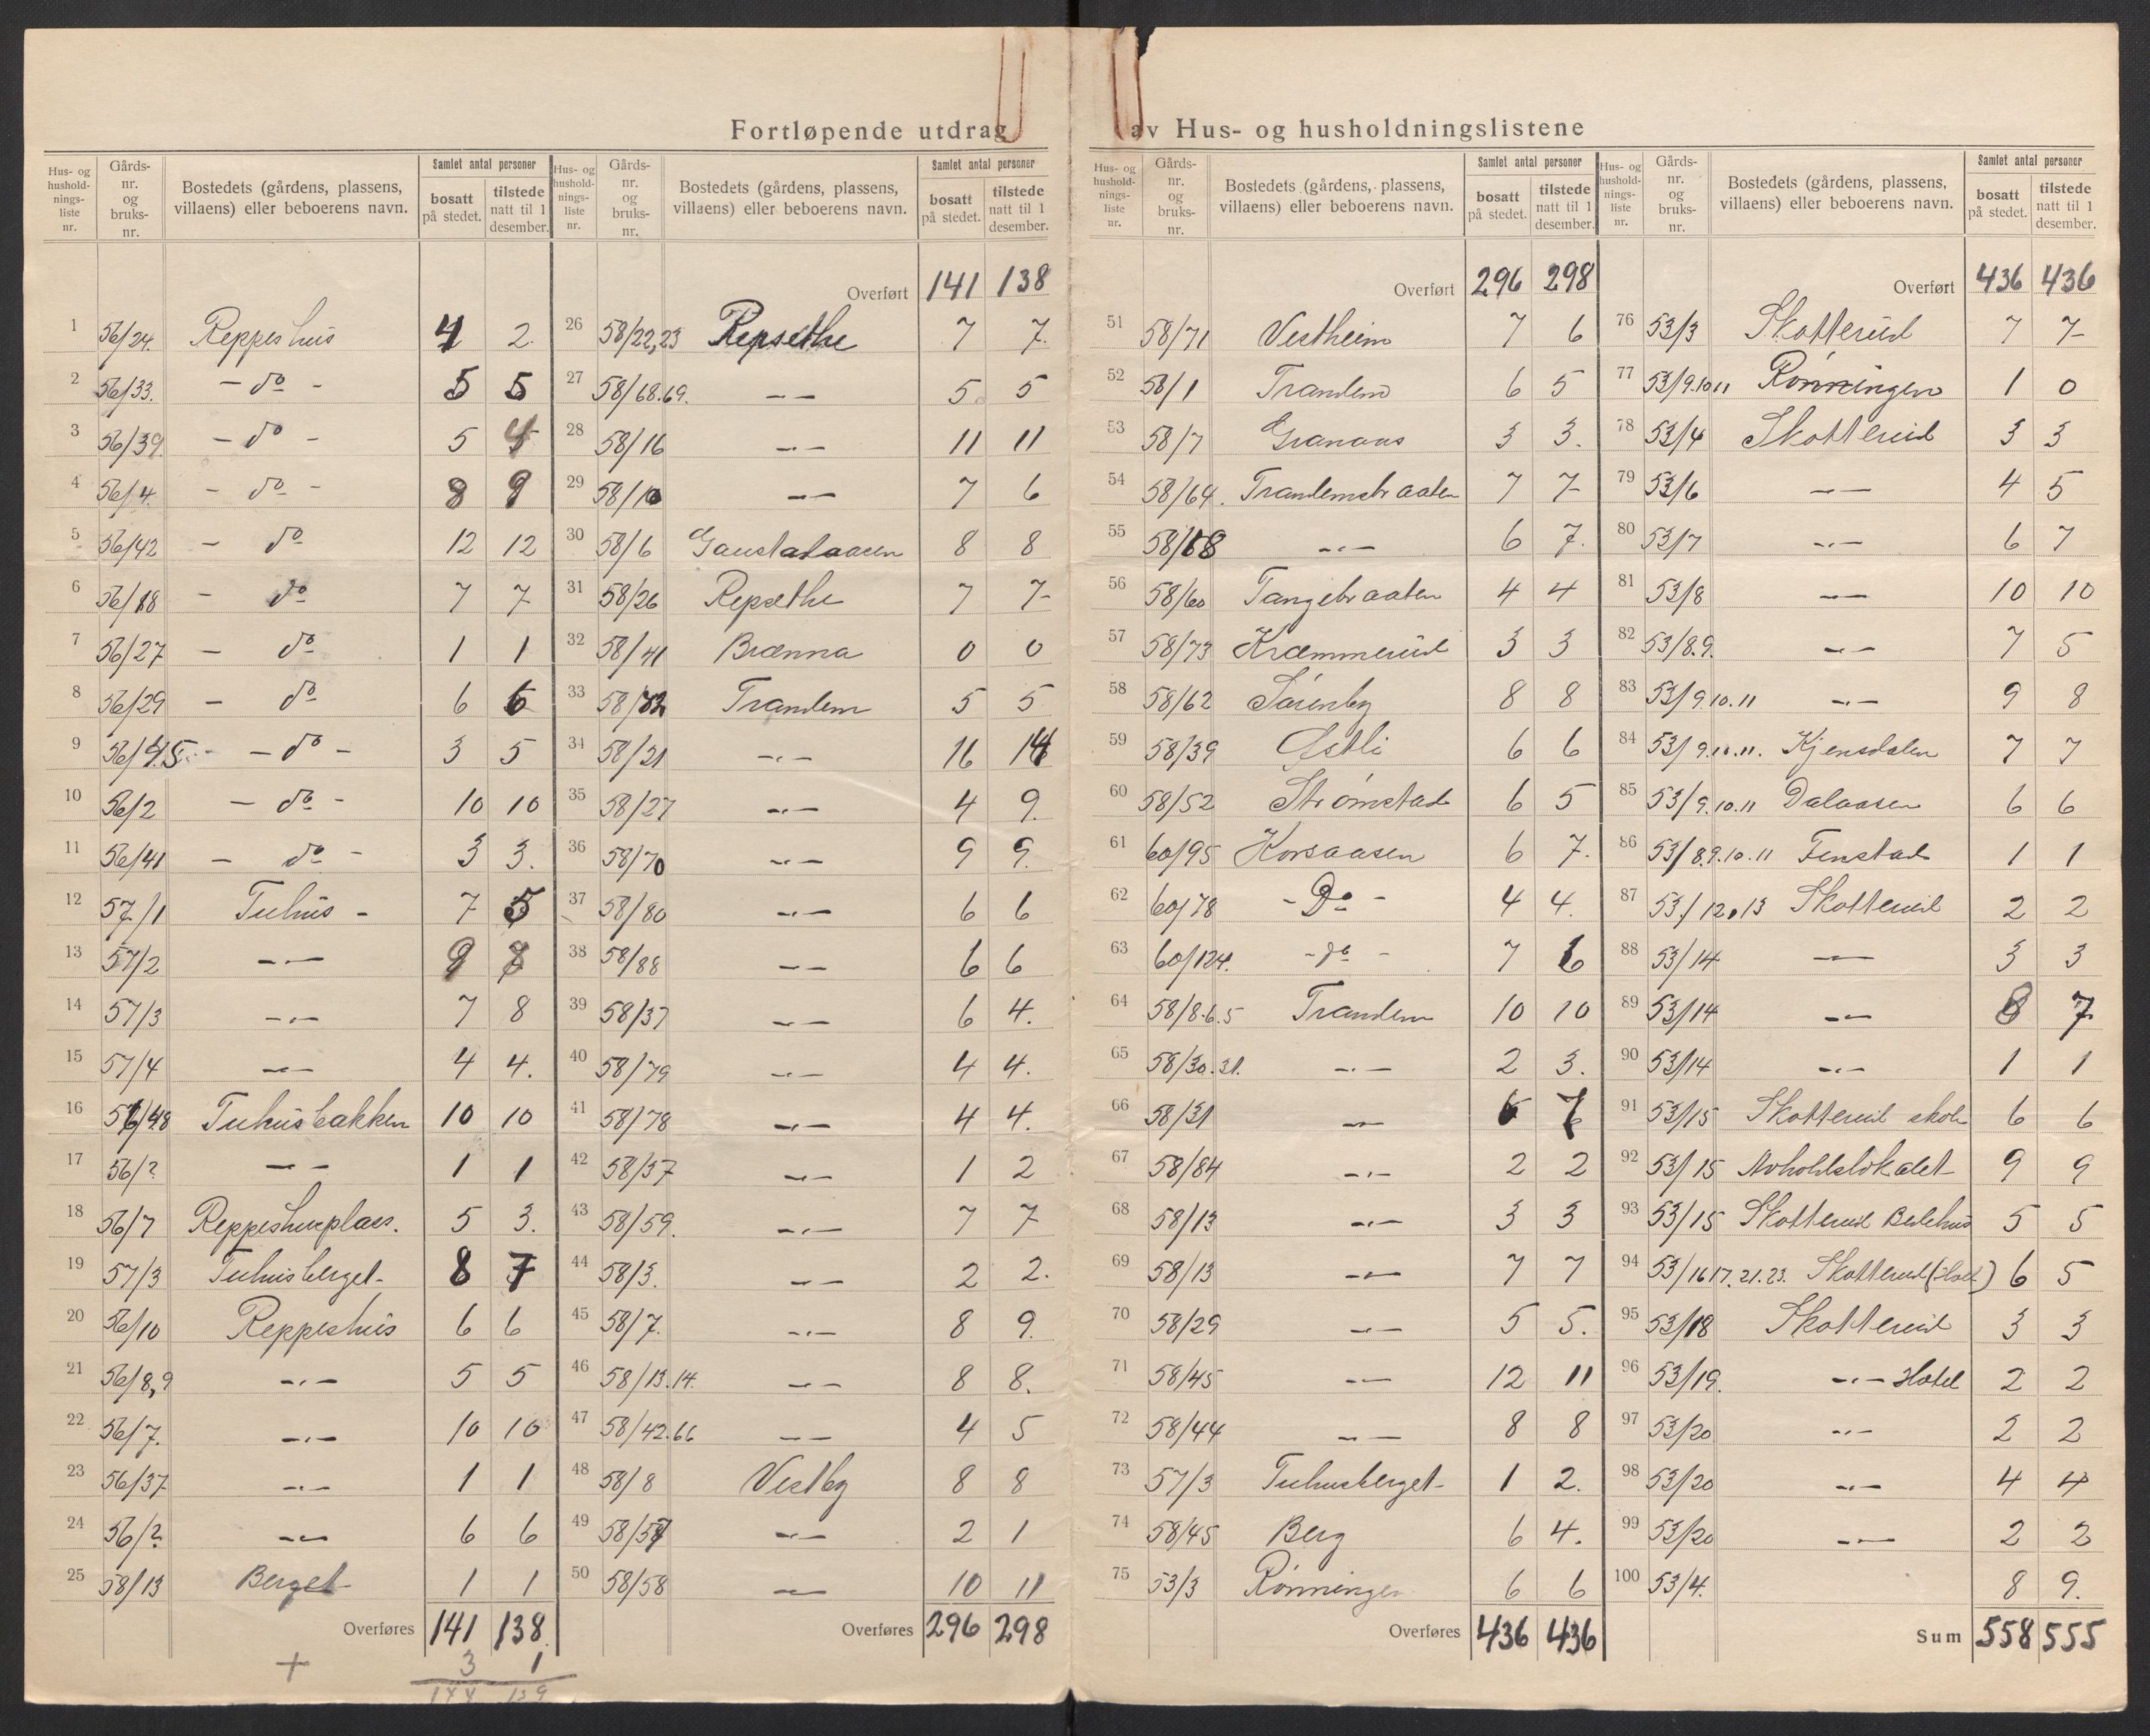 Fortløpende utdrag av Hus- og husholdningslistene
Hus- og hushold-nings-liste nr. Gårds-nr. og bruks-nr. Bostedets (gårdens, plassens, villaens) eller beboerens navn. Samlet antal personer bosatt på stedet. tilstede natt til 1 desember.
1 56/24 Reppeshus 4 2
2 56/33 - do - 5 5
3 56/39 - do - 5
4 56/4 - do - 8 9
5 56/42 - do 12 12
6 56/18 - do 7 7
7 56/27 - do 1 1
8 56/29 - do 6 6
9 56/45 - do - 3 5
10 56/2 - do - 10 10
11 56/41 - do - 3 3.
12 57/1 Tuhus - 7 5
13 57/2 -"- 9 8
14 57/3 -"- 7 8
15 57/4 -"- 4 4.
16 56/48 Tuhusbakken 10 10
17 56/? -"- 1 1
18 56/7 Reppeshusplass. 5 3.
19 57/3 Tuhusberget 8 7
20 56/10 Reppeshus 6 6
21 56/8,9 -"- 5 5
22 56/7. -"- 10 10
23 56/37 -"- 1 1
24 56/? -"- 6 6
25 58/13 Berget 1 1
Overføres 141 138
+ 3 1
144 139
Hus- og hushold-nings-liste nr. Gårds-nr. og bruks-nr. Bostedets (gårdens, plassens, villaens) eller beboerens navn. Samlet antal personer bosatt på stedet. tilstede natt til 1 desember.
Overført 141 138
26 58/22,23 Repsethe 7 7.
27 58/68.69. -"- 5 5
28 58/16 -"- 11 11
29 58/10 -"- 7 6
30 58/6 Gaustadaasen 8 8
31 58/26 Repsethe 7 7
32 58/41 Brænna 0 0
33 58/72 Trandem 5 5
34 58/21 -"- 16 14
35 58/27 -"- 4 9.
36 58/70 -"- 9 9.
37 58/80 -"- 6 6
38 58/88 -"- 6 6
39 58/37 -"- 6 4.
40 58/79 -"- 4 4.
41 58/78 -"- 4 4.
42 58/57 -"- 1 2
43 58/59. -"- 7 7
44 58/3. -"- 2 2.
45 58/7. -"- 8 9.
46 58/13.14. -"- 8 8.
47 58/42.66 -"- 4 5
48 58/8 Vestby 8 8
49 58/57 -"- 2 1
50 58/58 -"- 10 11
Overføres 296 298
Hus- og hushold-nings-liste nr. Gårds-nr. og bruks-nr. Bostedets (gårdens, plassens, villaens) eller beboerens navn. Samlet antal personer bosatt på stedet. tilstede natt til 1 desember.
Overført 296 298
51 58/71 Vestheim 7 6
52 58/1 Trandem 6 5
53 58/7 Granaas 3 3.
54 58/64. Trandemsbraaten 7 7
55 58/68 -"- 6 7.
56 58/60 Tangebraaten 4 4
57 58/73 Kræmmerud 3 3
58 58/62 Sörenby 8 8
59 58/39 Østli 6 6
60 58/52 Strömstad 6 5
61 60/95 Korsaasen 6 7.
62 60/78 - Do - 4 4.
63 60/124. - do - 7 6
64 58/8.6.5 Trandem 10 10
65 58/30.31. -"- 2 3.
66 58/31 -"- 6 7
67 58/84 -"- 2 2
68 58/13 -"- 3 3
69 58/13 -"- 7 7
70 58/29 -"- 5 5.
71 58/45 -"- 12 11
72 58/44 -"- 8 8
73 57/3 Tuhusberget 1 2.
74 58/45 Berg 6 4.
75 53/3 Rönningen 6 6
Overføres 436 436
Hus- og hushold-nings-liste nr. Gårds-nr. og bruks-nr. Bostedets (gårdens, plassens, villaens) eller beboerens navn. Samlet antal personer bosatt på stedet. tilstede natt til 1 desember.
Overført 436 436
76 53/3 Skotterud 7 7
77 53/9.10.11 Rönningen 1 0
78 53/4 Skotterud 3 3
79 53/6 -"- 4 5
80 53/7 -"- 6 7
81 53/8 -"- 10 10
82 53/8.9. -"- 7 5
83 53/9.10.11 -"- 9 8
84 53/9.10.11. Kjensdalen 7 7
85 53/9.10.11 Dalaasen 6 6
86 53/8.9.10.11 Fenstad 1 1
87 53/12.13 Skotterud 2 2
88 53/14 -"- 3 3
89 53/14 -"- 8 7
90 53/14 -"- 1 1
91 53/15 Skotterud skole 6 6
92 53/15 Avholdslokalet 9 9
93 53/15 Skotterud Bedehus 5 5
94 53/16 17. 21. 23. Skotterud 6 5
95 53/18 Skotterud 3 3
96 53/19. -"- Hotel 2 2
97 53/20 -"- 2 2
98 53/20 -"- 4 4
99 53/20 -"- 2 2
100 53/4. 8 9.
Sum 558 555